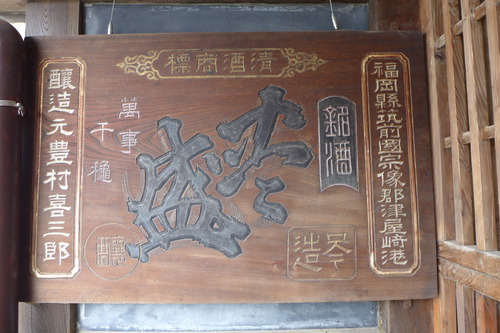 清酒商標
福岡縣筑前國宗像郡津屋崎港
銘酒
盛
萬事
千穐
釀造元豊村喜三郎